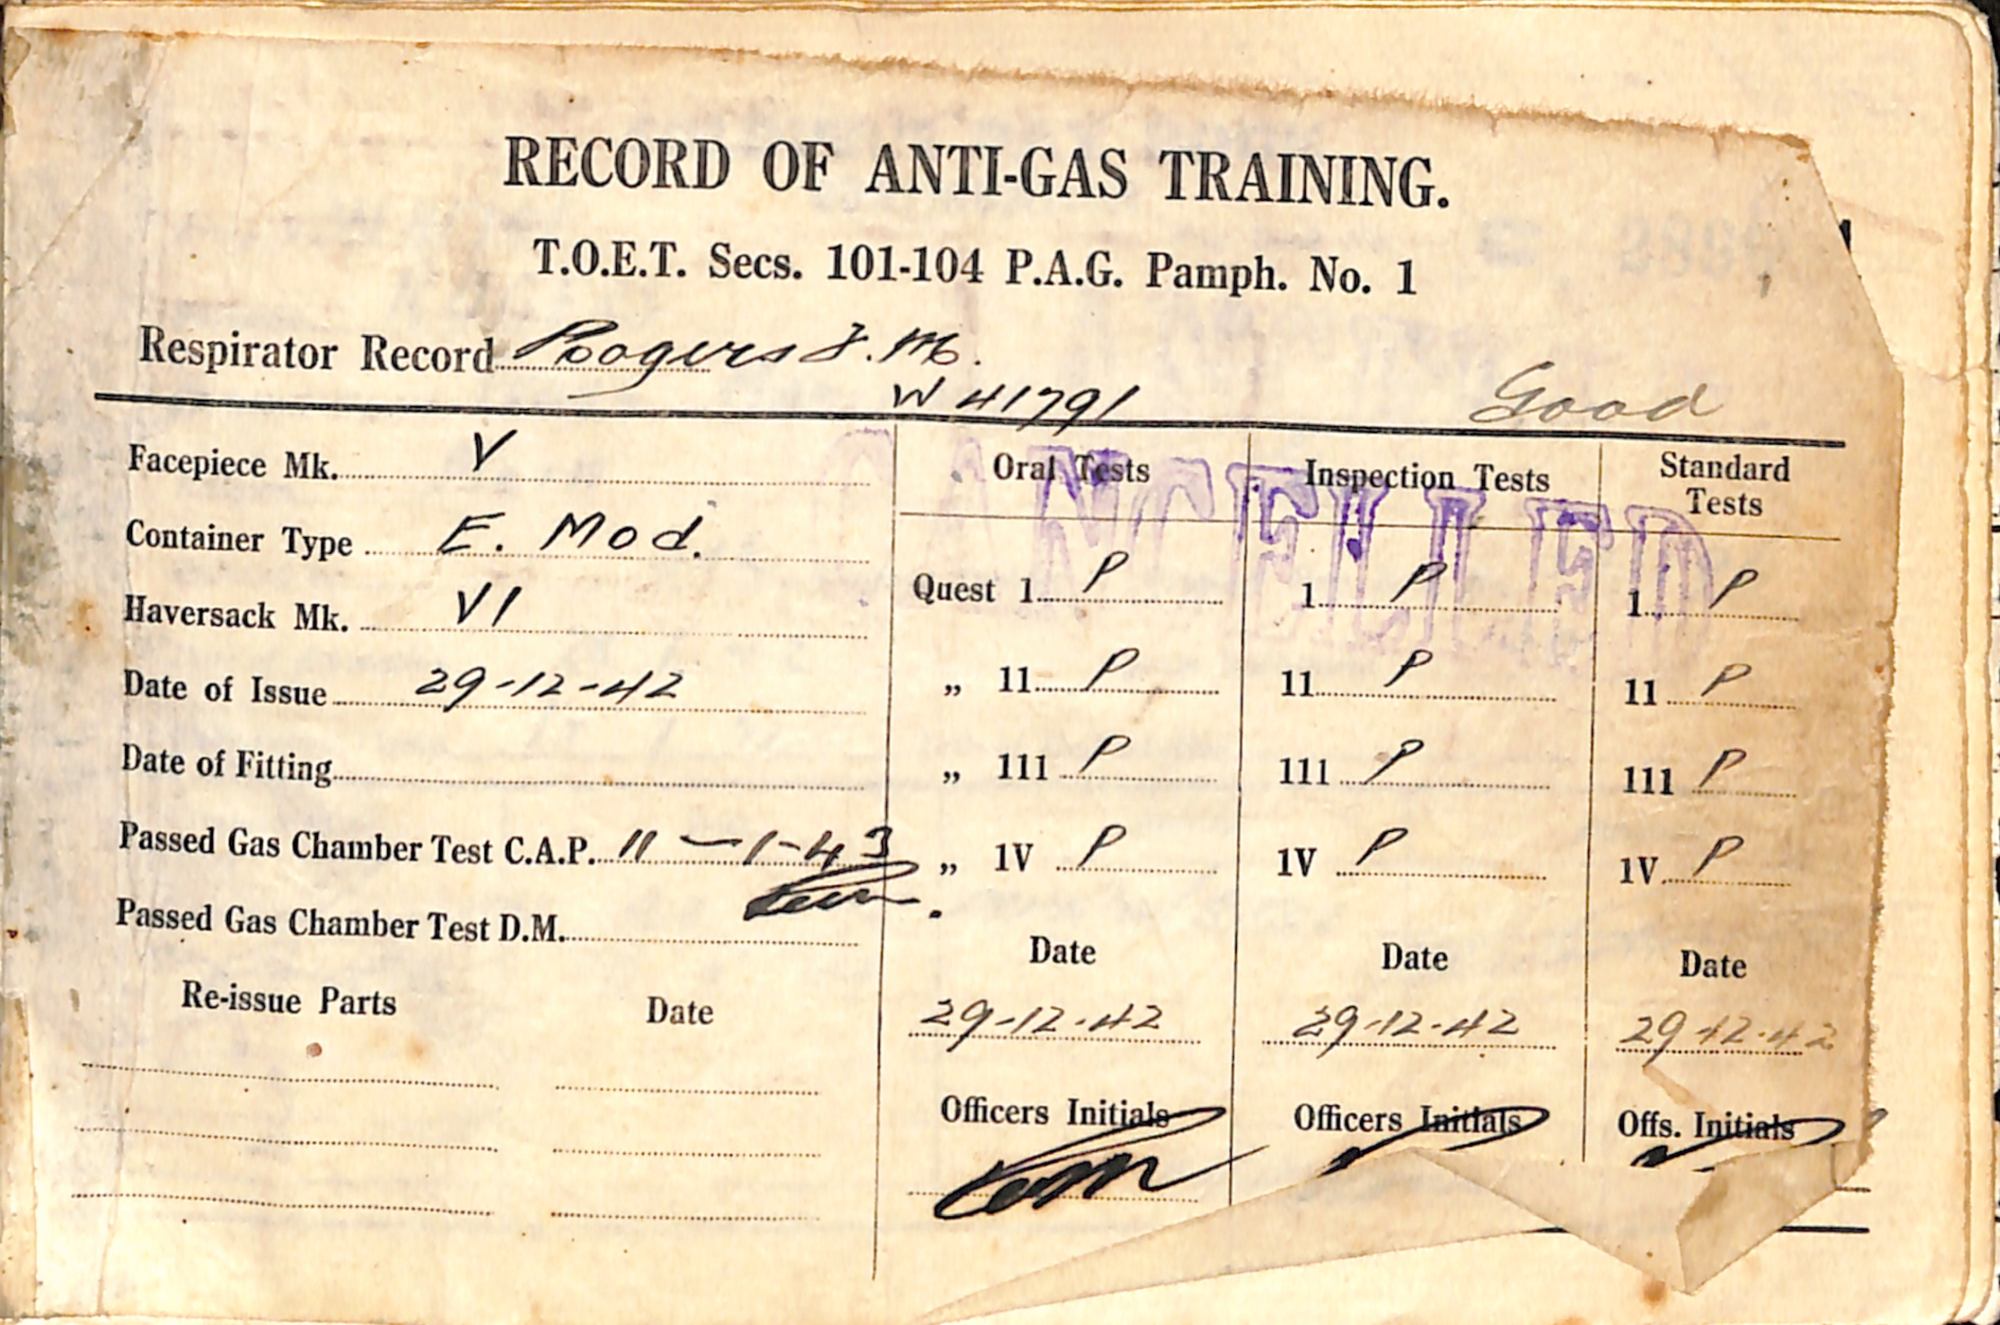 RECORD OF ANTI-GAS TRAINING.
T.O.E.T. Secs. 101-104 P.A.G. Pamph. No. 1
Respirator Record Rogers J. M.
W 41791 Good
Facepiece Mk. V
Container Type E. Mod.
Haversack Mk. VI
Date of Issue 29-12-42
Date of Fitting
Passed Gas Chamber Test C.A.P. 11-1-43
Passed Gas Chamber Test D.M.
Re-issue Parts Date
CANCELLED
Oral Tests
Quest 1 P
„ 11 P
„ 111 P
„ 1V P
Date
29-12-42
Officers Initials
Inspection Tests
1 P
11 P
111 P
1V P
Date
29-12-42
Officers Initials
Standard
Tests
1 P
11 P
111 P
1V P
Date
29-12-42
Offs. Initials